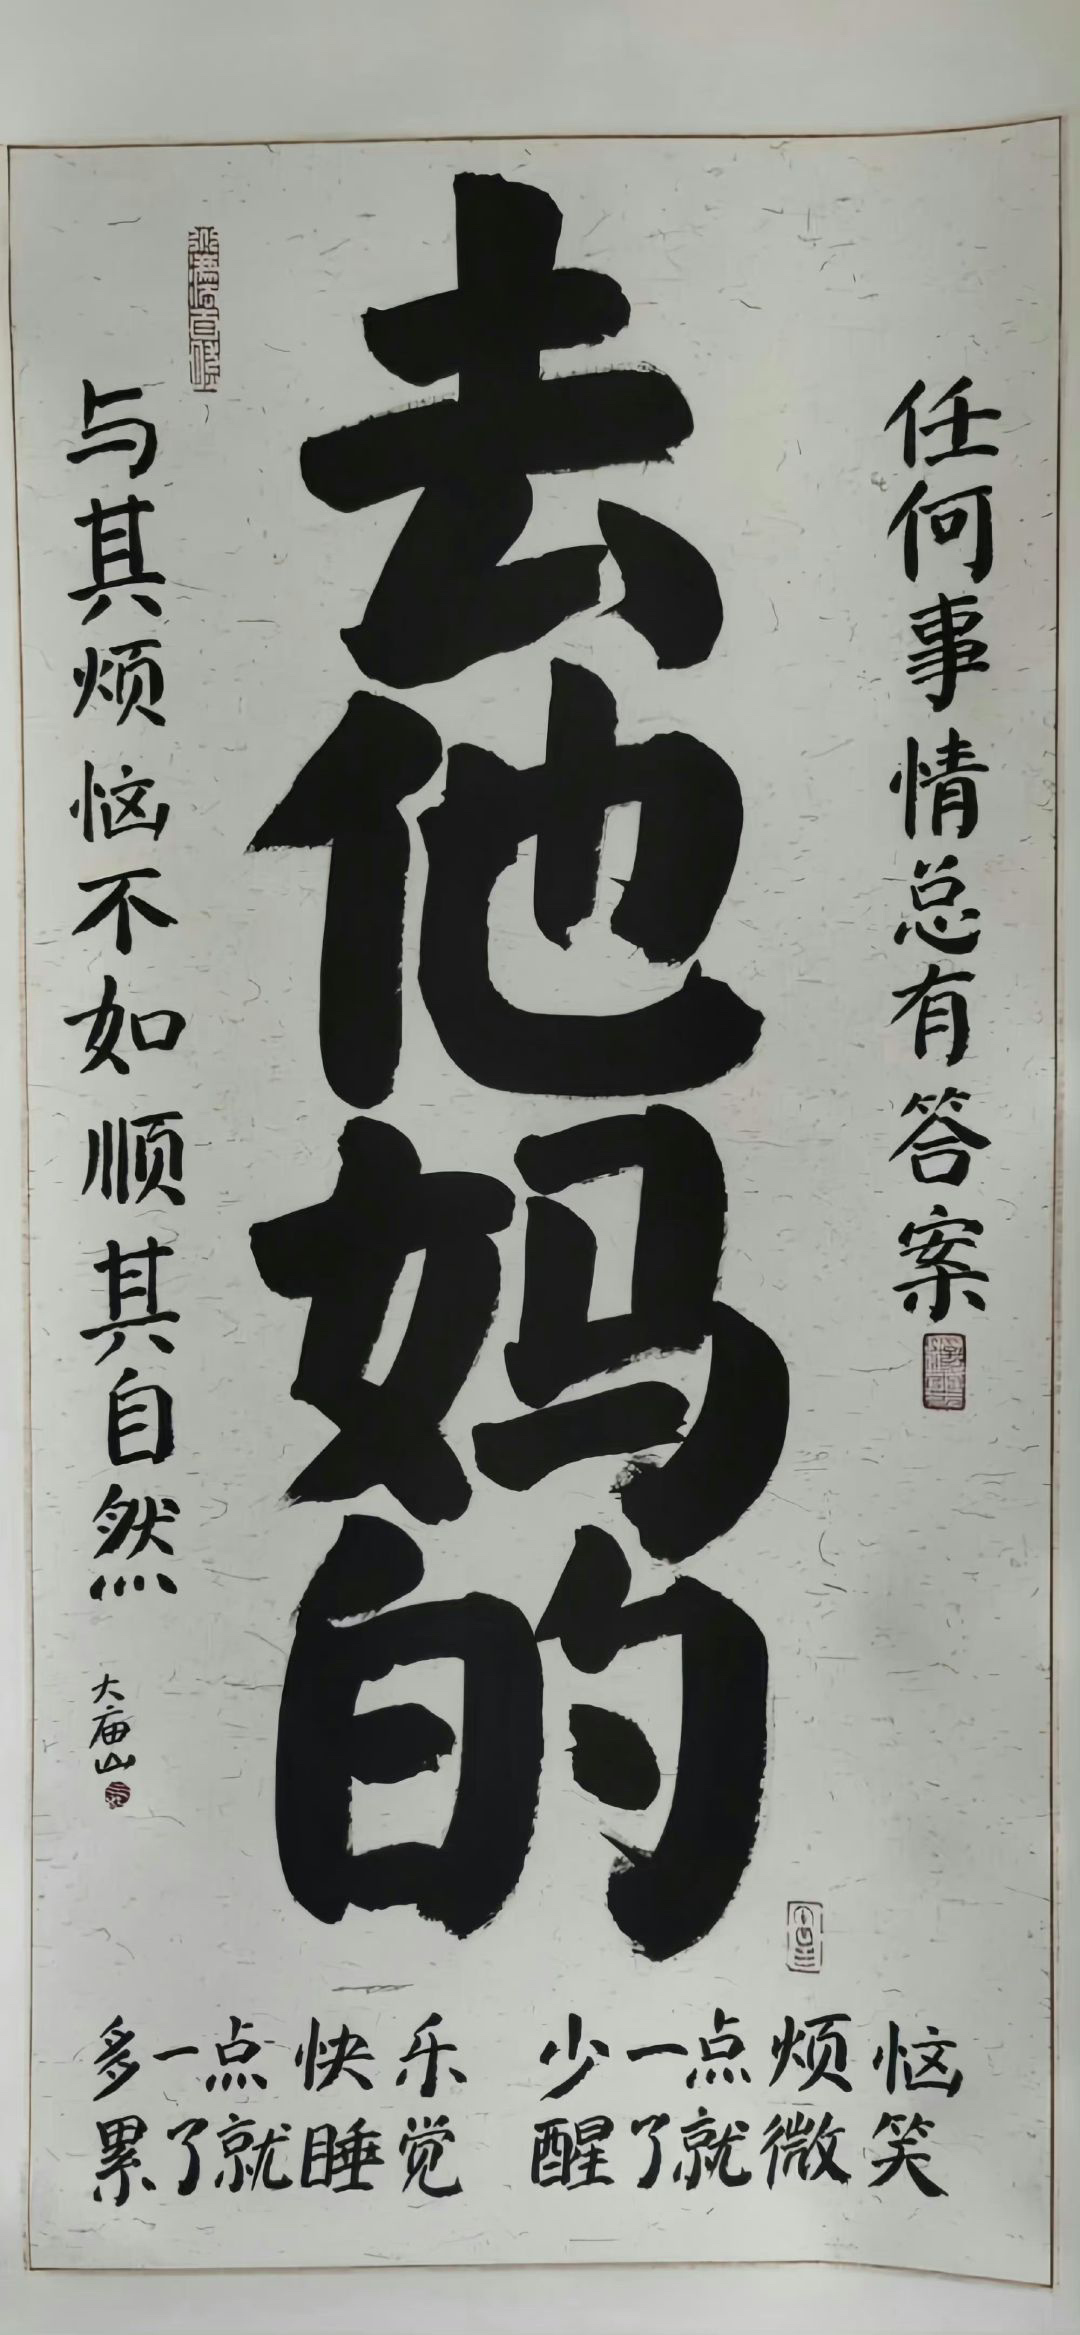 任何事情总有答案
去他妈的
与其烦恼不如顺其自然
大庙山
多一点快乐 少一点烦恼
累了就睡觉 醒了就微笑